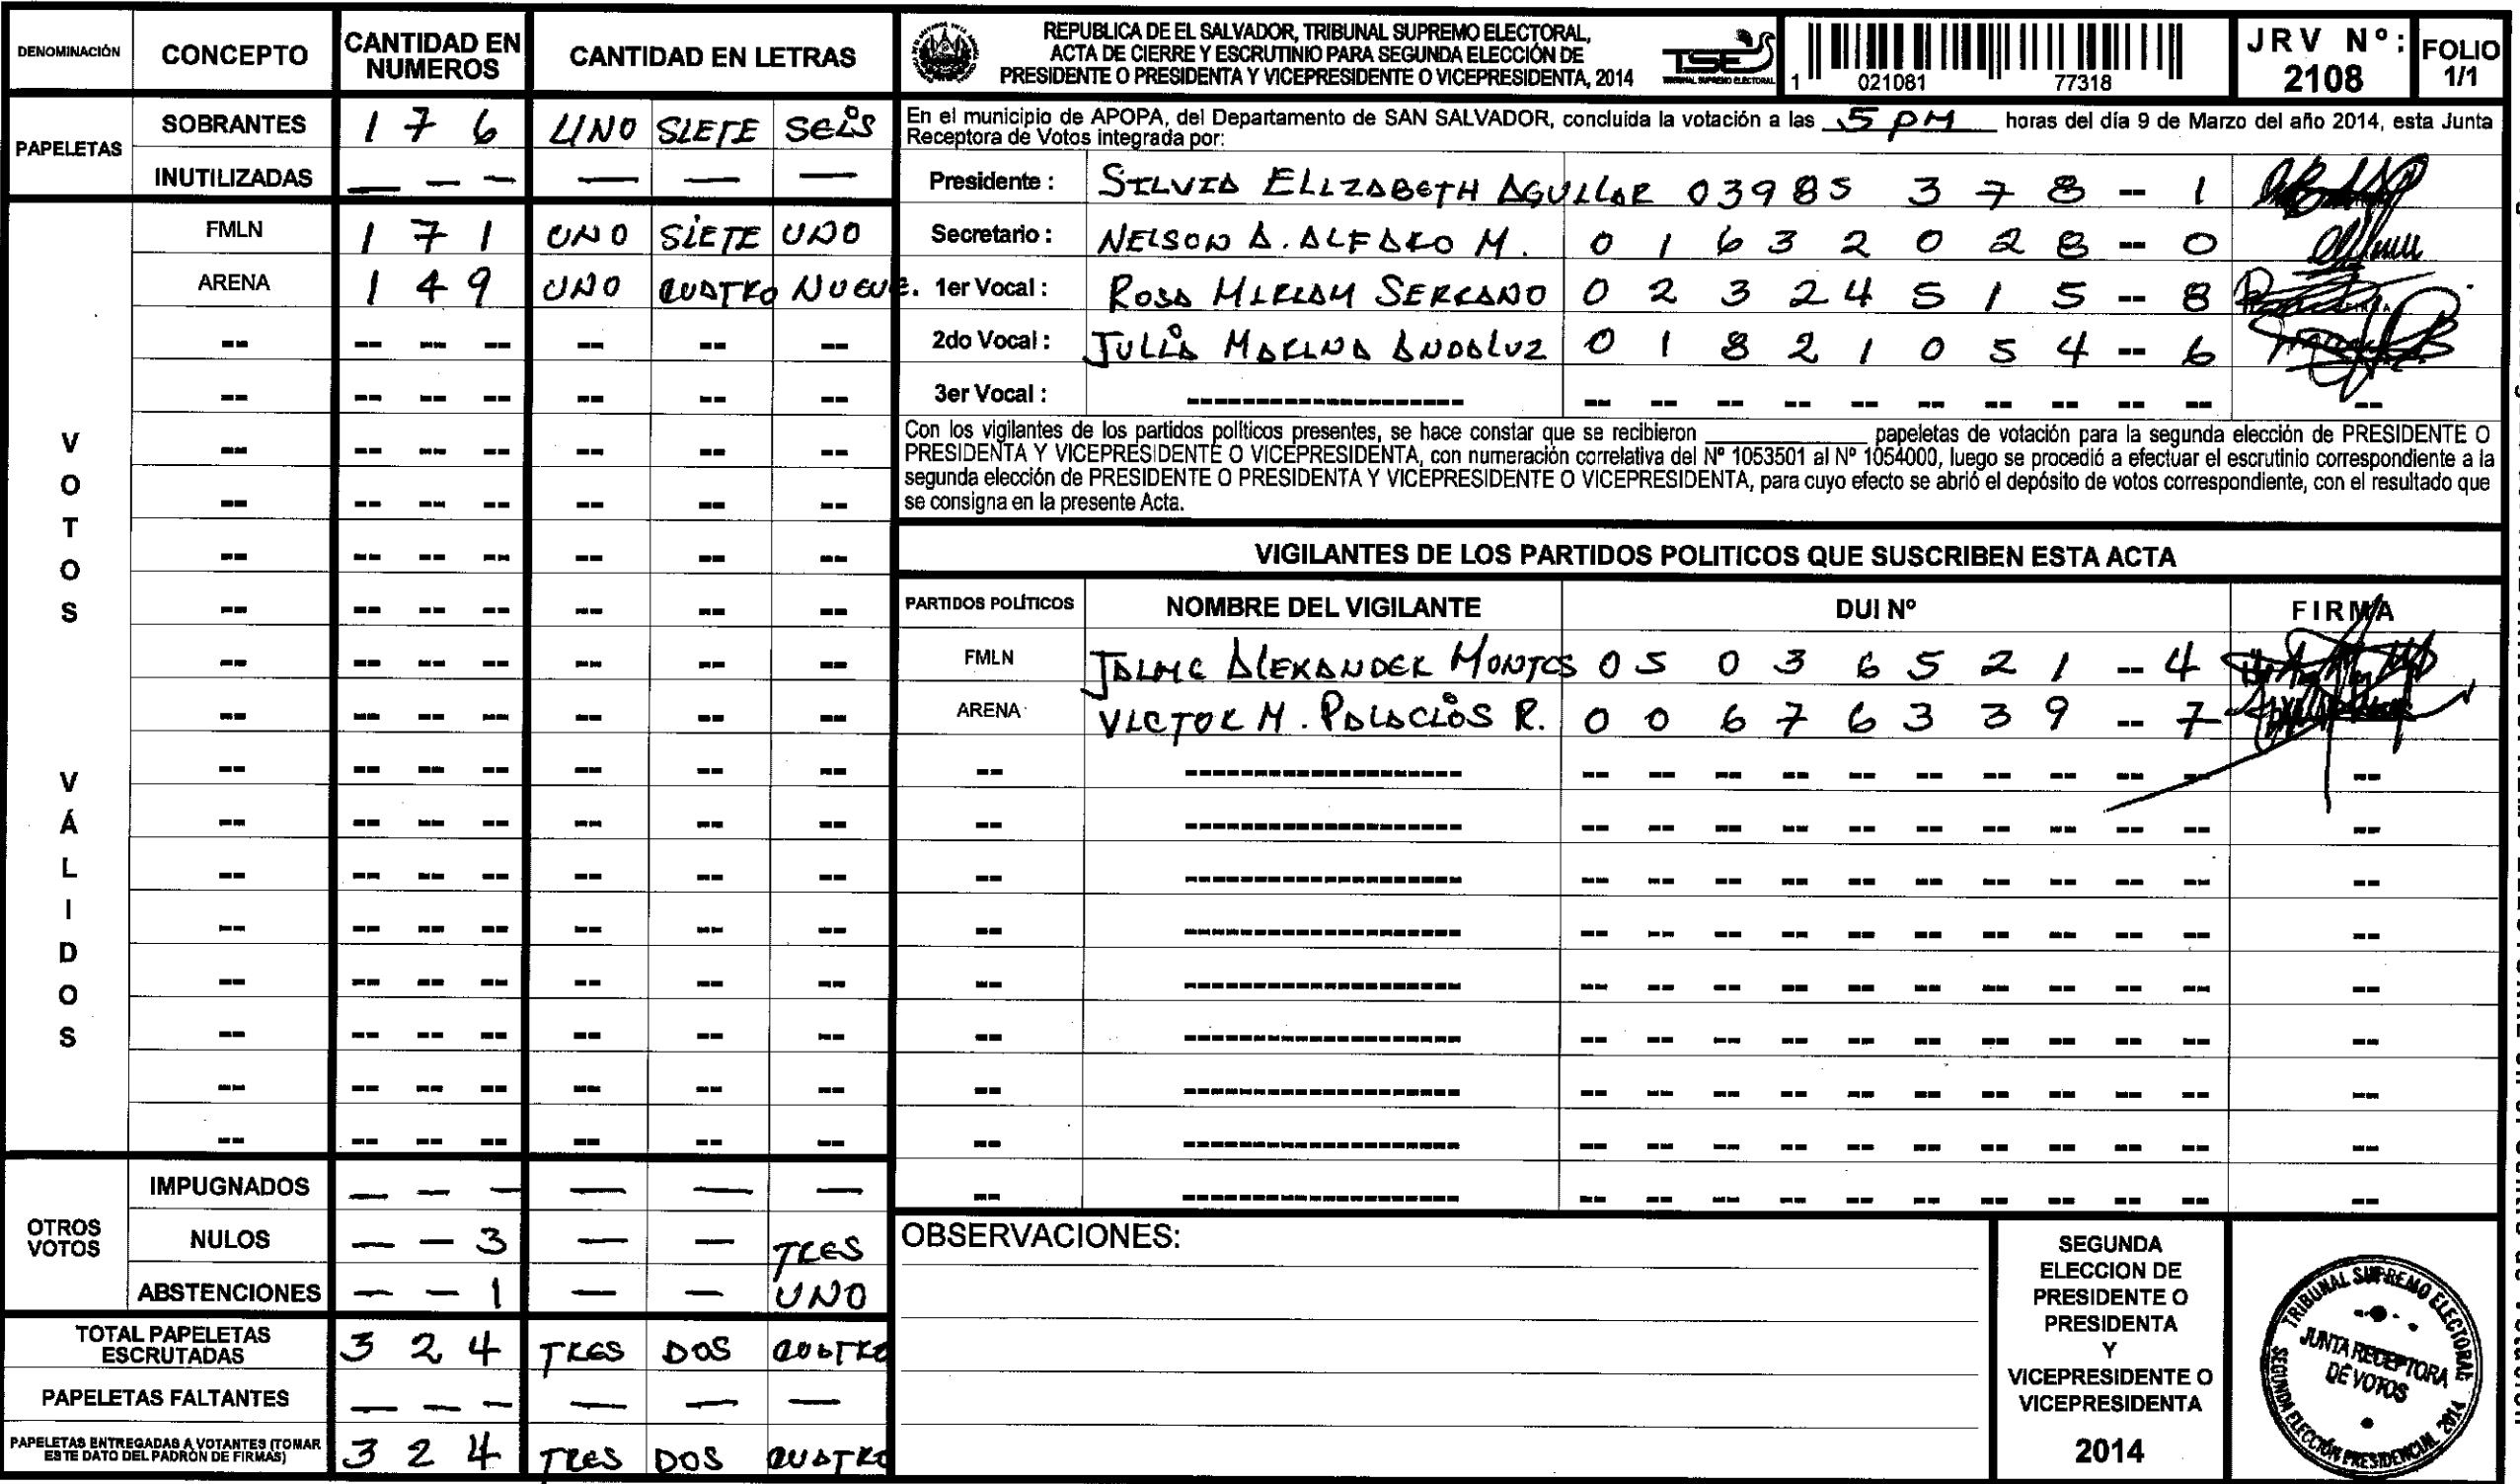 DENOMINACIÓN CONCEPTO CANTIDAD EN NUMEROS CANTIDAD EN LETRAS
PAPELETAS
SOBRANTES 1 7 6 UNO SIETE SEIS
INUTILIZADAS — — — — — —
VOTOS VÁLIDOS
FMLN 1 7 1 UNO SIETE UNO
ARENA 1 4 9 UNO CUATRO NUEVE.
OTROS VOTOS
IMPUGNADOS — — — — — —
NULOS — — 3 — — TRES
ABSTENCIONES — — 1 — — UNO
TOTAL PAPELETAS ESCRUTADAS 3 2 4 TRES DOS CUATRO
PAPELETAS FALTANTES — — — — — —
PAPELETAS ENTREGADAS A VOTANTES (TOMAR ESTE DATO DEL PADRÓN DE FIRMAS) 3 2 4 TRES DOS CUATRO
REPUBLICA DE EL SALVADOR, TRIBUNAL SUPREMO ELECTORAL,
ACTA DE CIERRE Y ESCRUTINIO PARA SEGUNDA ELECCIÓN DE
PRESIDENTE O PRESIDENTA Y VICEPRESIDENTE O VICEPRESIDENTA, 2014
TSE
TRIBUNAL SUPREMO ELECTORAL
1 021081 77318
JRV Nº: 2108
FOLIO 1/1
En el municipio de APOPA, del Departamento de SAN SALVADOR, concluida la votación a las 5 PM horas del día 9 de Marzo del año 2014, esta Junta
Receptora de Votos integrada por:
Presidente : SILVIA ELIZABETH AGUILAR 0 3 9 8 5 3 7 8 -- 1
Secretario : NELSON A. ALFARO M. 0 1 6 3 2 0 2 8 -- 0
1er Vocal : ROSA MIRIAM SERRANO 0 2 3 2 4 5 1 5 -- 8
2do Vocal : JULIA MARINA ANDALUZ 0 1 8 2 1 0 5 4 -- 6
3er Vocal : --------------------
Con los vigilantes de los partidos políticos presentes, se hace constar que se recibieron ____________ papeletas de votación para la segunda elección de PRESIDENTE O
PRESIDENTA Y VICEPRESIDENTE O VICEPRESIDENTA, con numeración correlativa del Nº 1053501 al Nº 1054000, luego se procedió a efectuar el escrutinio correspondiente a la
segunda elección de PRESIDENTE O PRESIDENTA Y VICEPRESIDENTE O VICEPRESIDENTA, para cuyo efecto se abrió el depósito de votos correspondiente, con el resultado que
se consigna en la presente Acta.
VIGILANTES DE LOS PARTIDOS POLITICOS QUE SUSCRIBEN ESTA ACTA
PARTIDOS POLÍTICOS NOMBRE DEL VIGILANTE DUI Nº FIRMA
FMLN JAIME ALEXANDER MONTES 0 5 0 3 6 5 2 1 -- 4
ARENA VICTOR M. PALACIOS R. 0 0 6 7 6 3 3 9 -- 7
OBSERVACIONES:
SEGUNDA
ELECCION DE
PRESIDENTE O
PRESIDENTA
Y
VICEPRESIDENTE O
VICEPRESIDENTA
2014
TRIBUNAL SUPREMO ELECTORAL
JUNTA RECEPTORA
DE VOTOS
SEGUNDA ELECCIÓN PRESIDENCIAL 2014